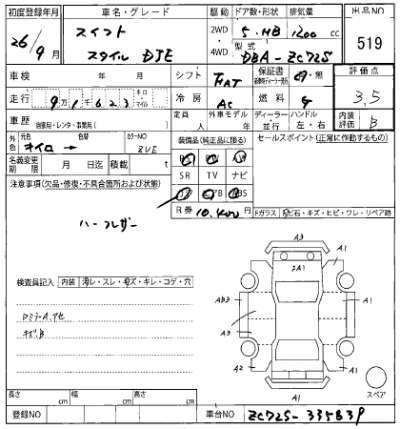 初度登録年月 車名・グレード 駆動 ドア数・形状 排気量 出品NO
26/9月 スイフト 2WD 5 HB 1200 cc 519
スタイル DJE 4WD 型式 DBA-ZC72S
車検 年 月 シフト FAT 保証書 有・無 評価点
走行 9万1千623 キロ マイル 冷房 AC 燃料 G 3.5
車歴 自家用・レンタ・事業用( ) 定員 人 外車モデル 年 ディーラー 並行 ハンドル 左・右 内装評価 B
外色 元色 色替 カラーNO 装備品(純正品に限る) セールスポイント(正常に作動するもの)
キイロ →
名義変更期限 月 日迄 積載 t SR TV ナビ
注意事項(欠品・修復・不具合箇所および状態)
R券 10,400円 Fガラス 飛石・キズ・ヒビ・ワレ・リペア跡
ハーフレザー
A3
A1
検査員記入 内装 汚レ・スレ・キズ・キレ・コゲ・穴
A1
AB3
A3
A3
A2
A1
A1
スペア
長さ cm 幅 cm 高さ cm
登録NO 車台NO ZC72S-335839